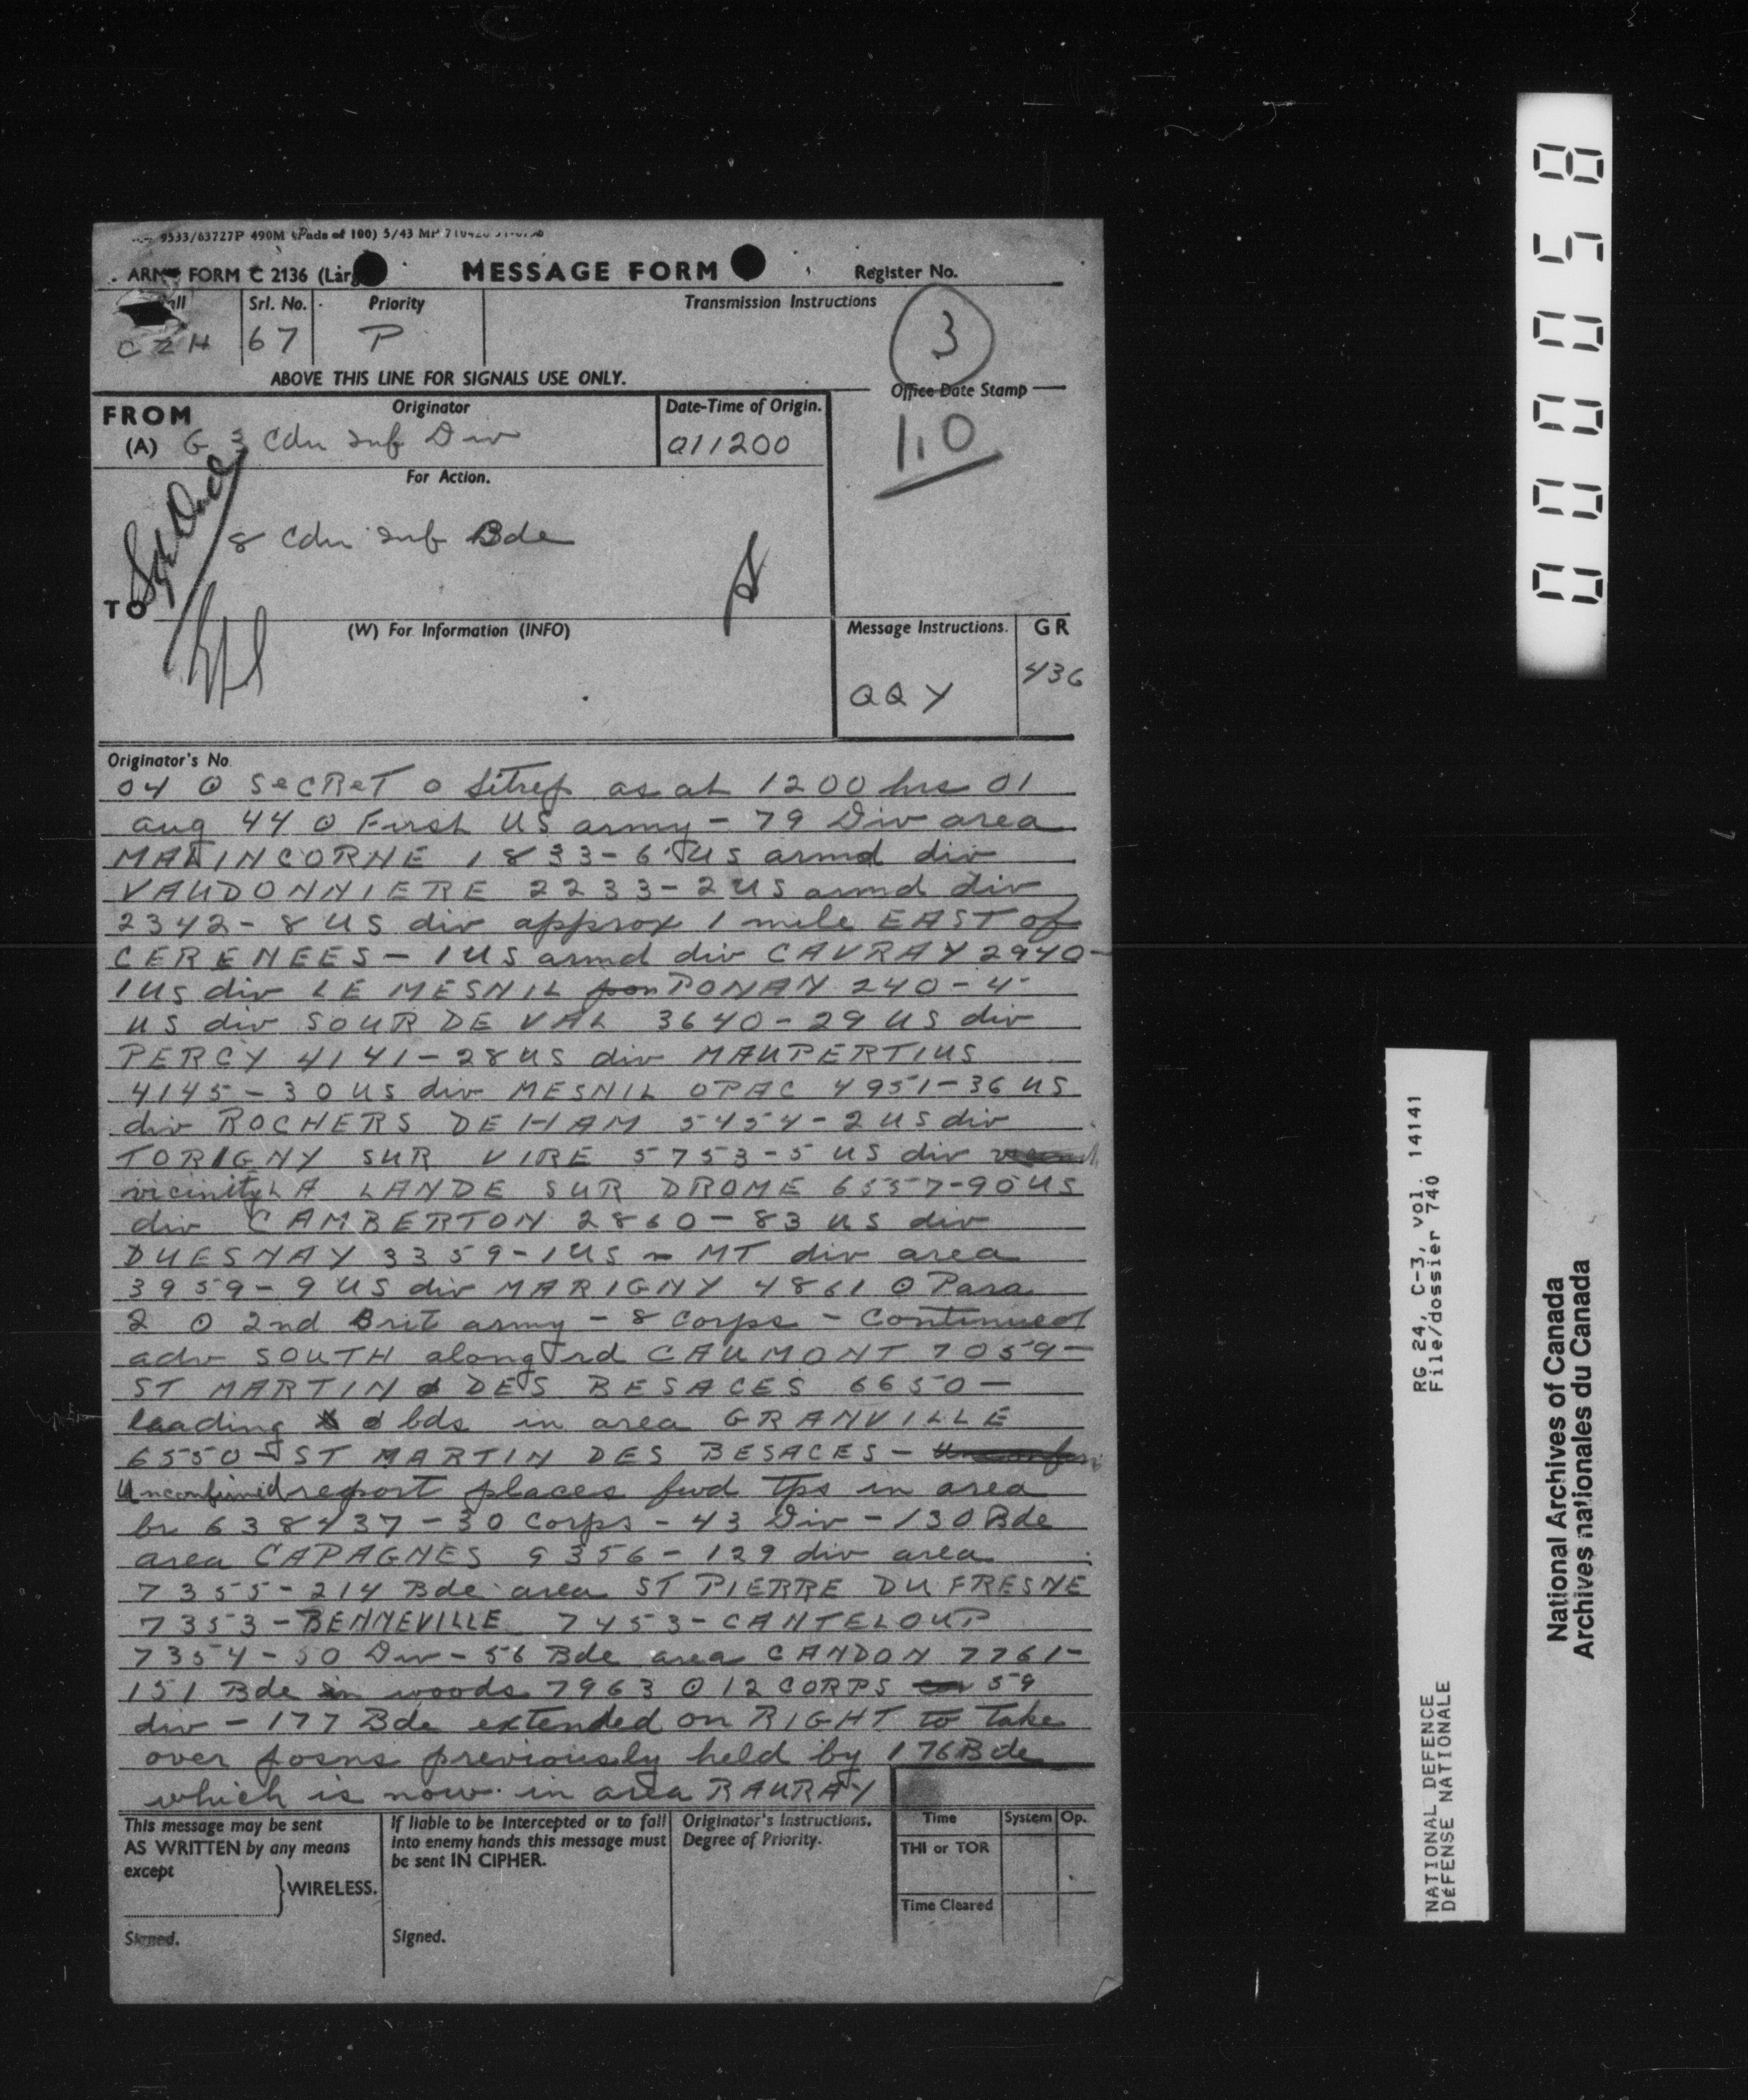 9533/63727P 490M (Pads of 100) 5/43 MP
ARMY FORM C 2136 (Large) MESSAGE FORM Register No.
Call Srl. No. Priority Transmission Instructions
CZH 67 P 3
ABOVE THIS LINE FOR SIGNALS USE ONLY.
Office Date Stamp
FROM Originator Date-Time of Origin.
(A) G 3 Cdn Inf Div 011200
1.0
For Action.
8 Cdn Inf Bde
TO
(W) For Information (INFO) Message Instructions. GR
QQY 436
Originator's No.
04 O SeCReT O Sitrep as at 1200 hrs 01
aug 44 O First US army - 79 Div area
MALINCORNE 1833 - 6 US armd div
VAUDONNIERE 2233 - 2 US armd div
2342 - 8 US div approx 1 mile EAST of
CERENEES - 1 US armd div CAVRAY 2940 -
1 US div LE MESNIL PONAN 240 - 4
US div SOUR DE VAL 3640 - 29 US div
PERCY 4141 - 28 US div MAUPERTIUS
4145 - 30 US div MESNIL OPAC 4951 - 36 US
div ROCHERS DE HAM 5454 - 2 US div
TORIGNY SUR VIRE 5753 - 5 US div
vicinity LA LANDE SUR DROME 6557 - 90 US
div CAMBERTON 2860 - 83 US div
DUESNAY 3359 - 1 US MT div area
3959 - 9 US div MARIGNY 4861 O Para
2 O 2nd Brit army - 8 Corps - Continued
adv SOUTH along rd CAUMONT 7059 -
ST MARTIN DES BESACES 6650 -
leading bds in area GRANVILLE
6550 - ST MARTIN DES BESACES -
Unconfirmed report places fwd tps in area
br 638437 - 30 Corps - 43 Div - 130 Bde
area CAPAGNES 9356 - 129 div area
7355 - 214 Bde area ST PIERRE DU FRESNE
7353 - BENNEVILLE 7453 - CANTELOUP
7354 - 50 Div - 56 Bde area CANDON 7761 -
151 Bde in woods 7963 O 12 CORPS 59
div - 177 Bde extended on RIGHT to take
over posns previously held by 176 Bde
which is now in area RAURAY
This message may be sent
AS WRITTEN by any means
except
WIRELESS.
Signed.
If liable to be intercepted or to fall
into enemy hands this message must
be sent IN CIPHER.
Signed.
Originator's Instructions.
Degree of Priority.
Time System Op.
THI or TOR
Time Cleared
000058
RG 24, C-3, vol. 14141
File/dossier 740
NATIONAL DEFENCE
DÉFENSE NATIONALE
National Archives of Canada
Archives nationales du Canada